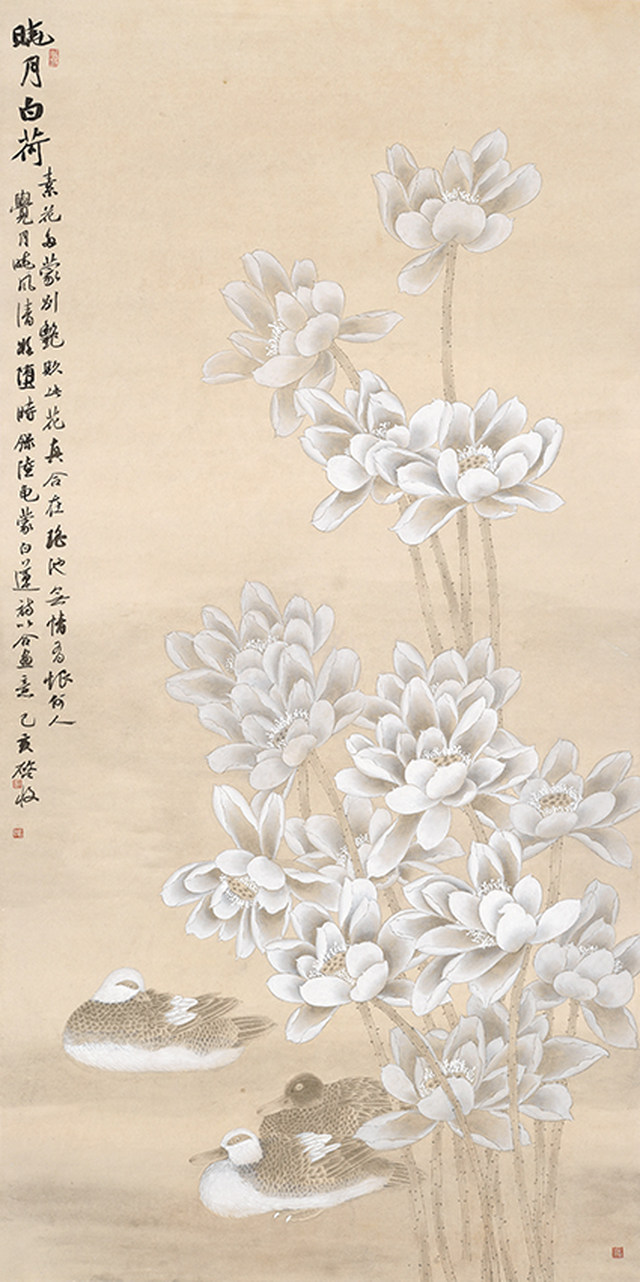 晓月白荷
素花多蒙别艷欺此花真合在瑶池無情有恨何人
覺月晓風清欲墮時錄陸龜蒙白蓮詩以合畫意己亥